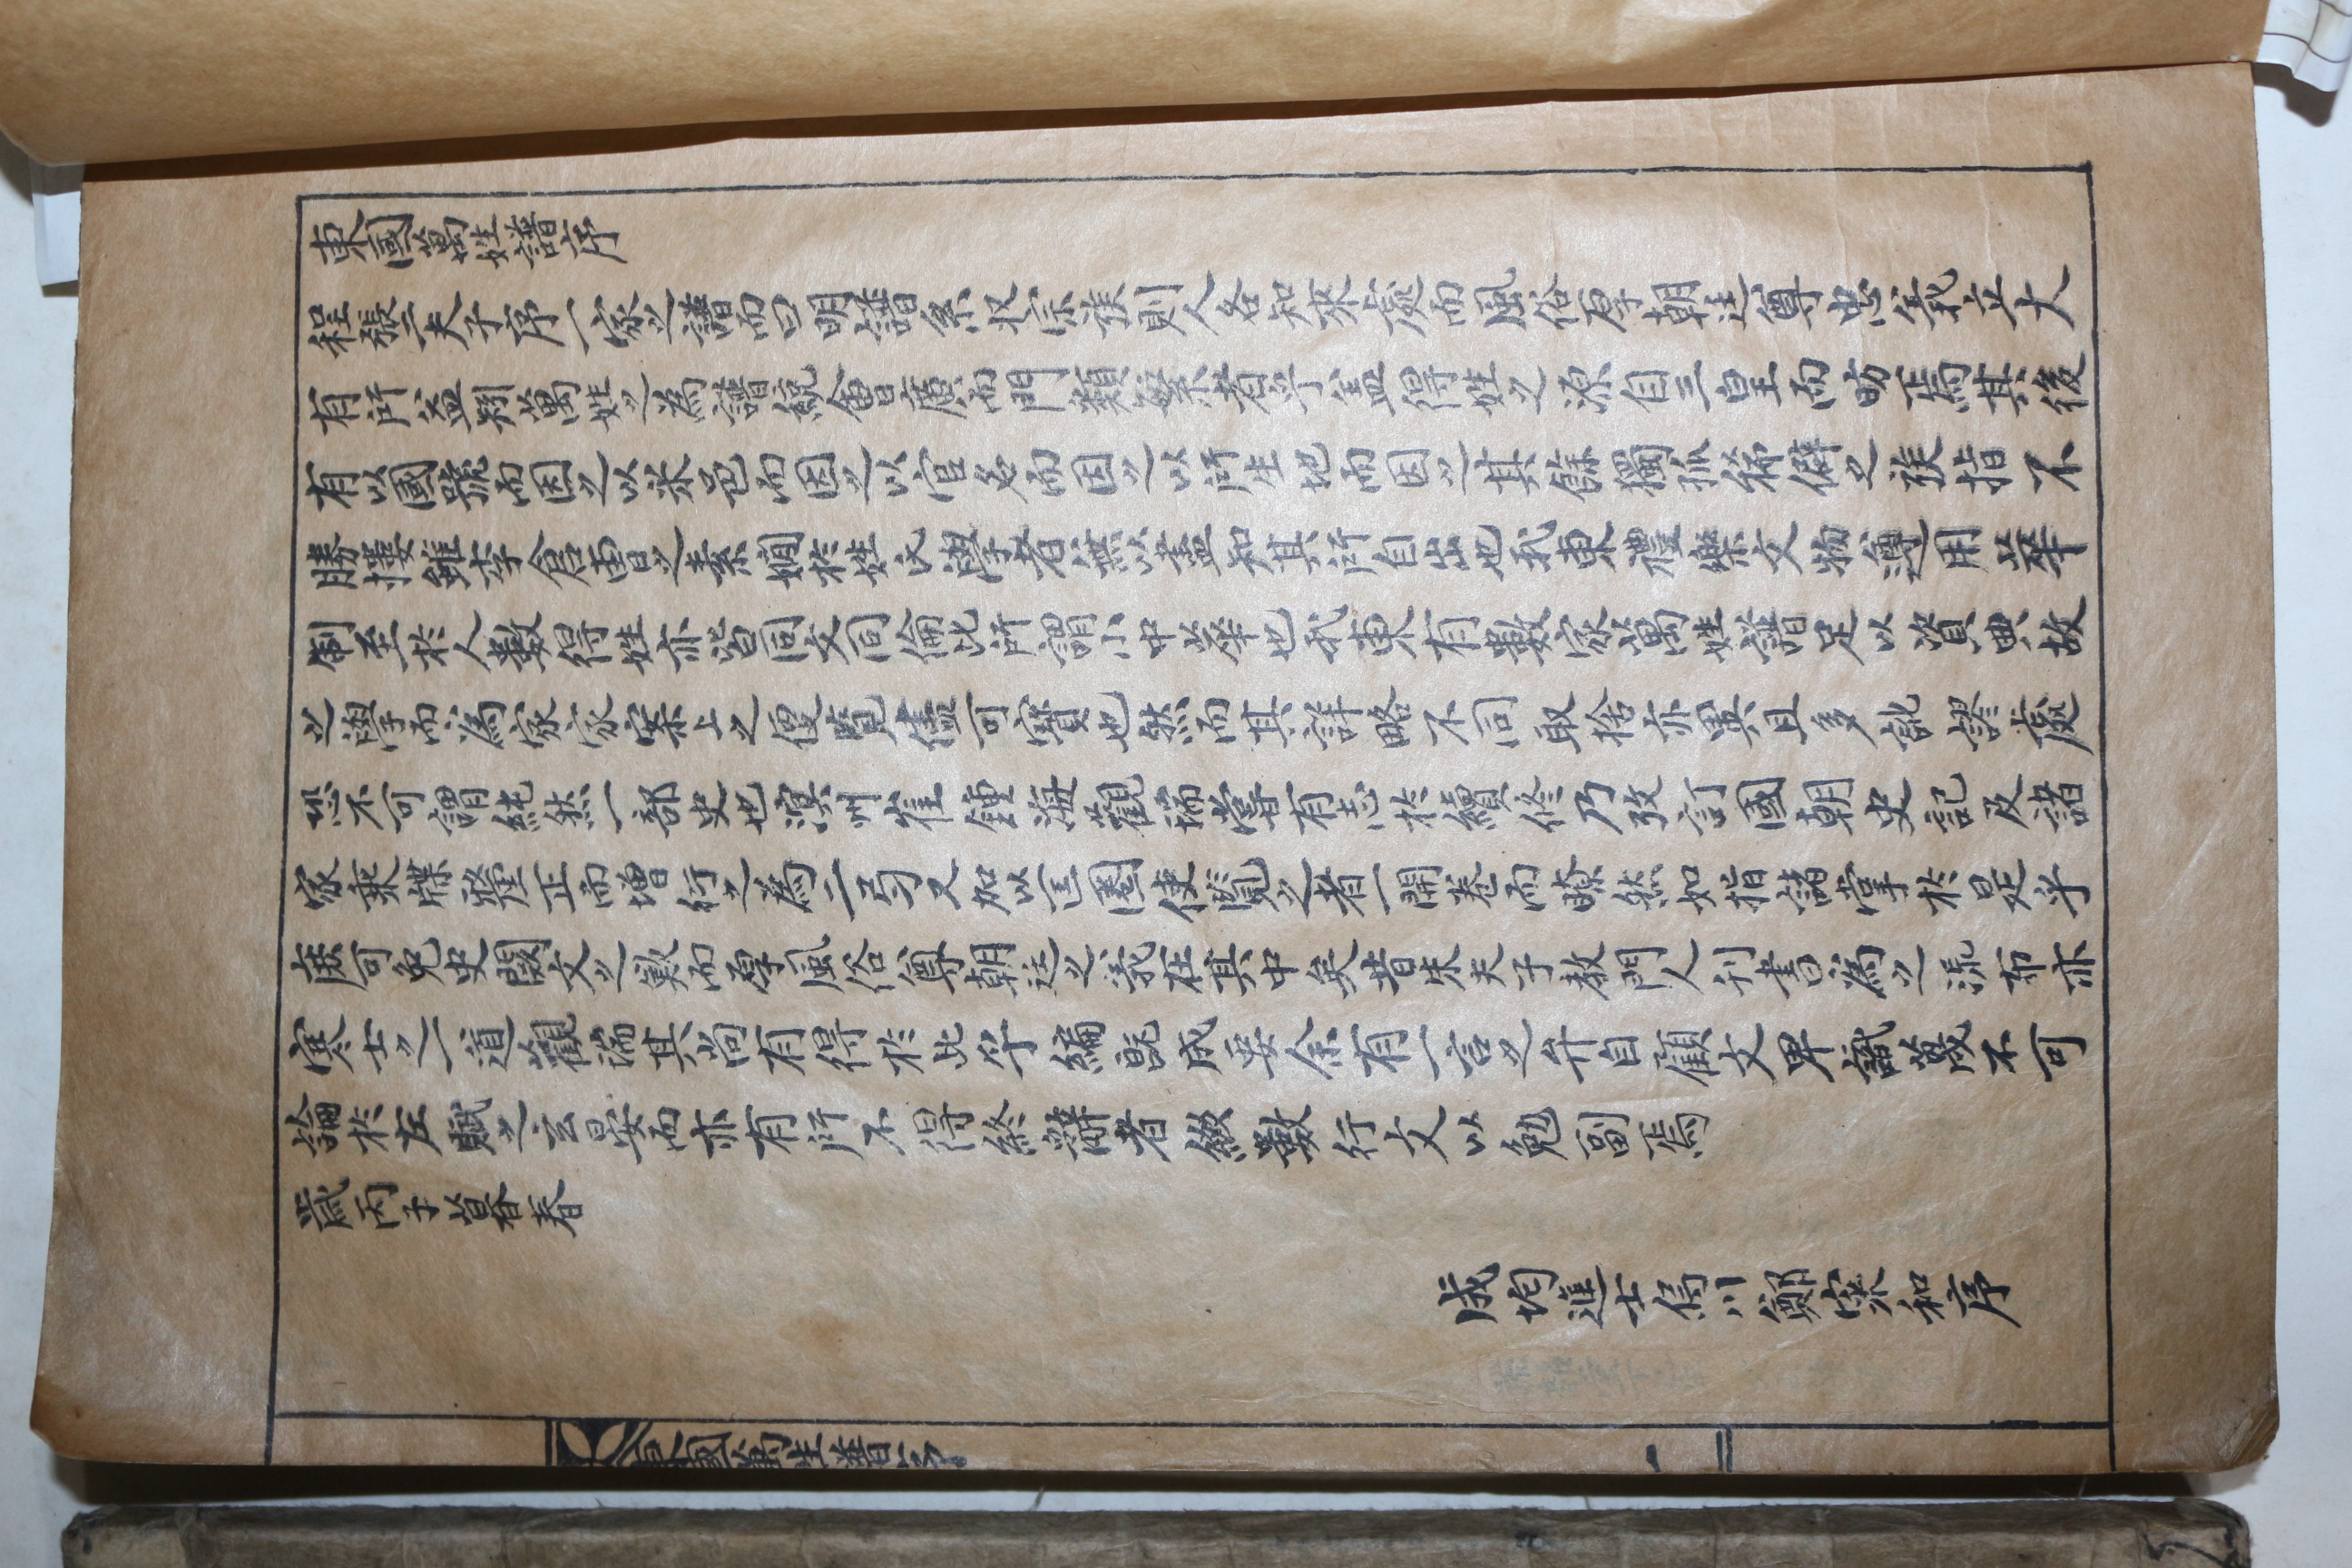 東國萬姓譜序
程張二夫子序一家之譜而曰明譜系收宗族則人各知來處而風俗厚朝廷尊忠義立大
有所益矧萬姓之為譜統會廣而門類繁者乎盖得姓之源自三皇而昉焉其後
有以國號而因之以采邑而因之以官名而因之以所生地而因之其餘獨孤稀僻之族指不
勝摟雖李倉曹之素嫺於姓氏學者無以盡知其所自出也我東禮樂文物遵用華
制至於人數得姓亦皆同文同倫此所謂小中華也我東有數家萬姓譜足以資典故
之學而為家家案上之便覧儘可寶也然而其詳略不同取捨亦異且多訛謬處
恐不可謂純然一部史也溟州崔鍾海觀瑞嘗有志於續修乃攷訂國朝史記及諸
家乘牒釐正而增行之為二又加以匡圏使覧之者一開卷而瞭然如指諸掌於是乎
庶可免史闕文之歎而厚風俗尊朝廷之義在其中矣昔朱夫子教門人刊書為之流布亦
寒士之一道觀瑞其尚有得於此乎編旣成要余有一言之弁自顧文卑識蔑不可
論於左賦之玄晏而亦有所不得終辭者綴數行文以勉副焉
歲丙子暮春
成均進士烏川鄭寀和序
東國萬姓譜序
一